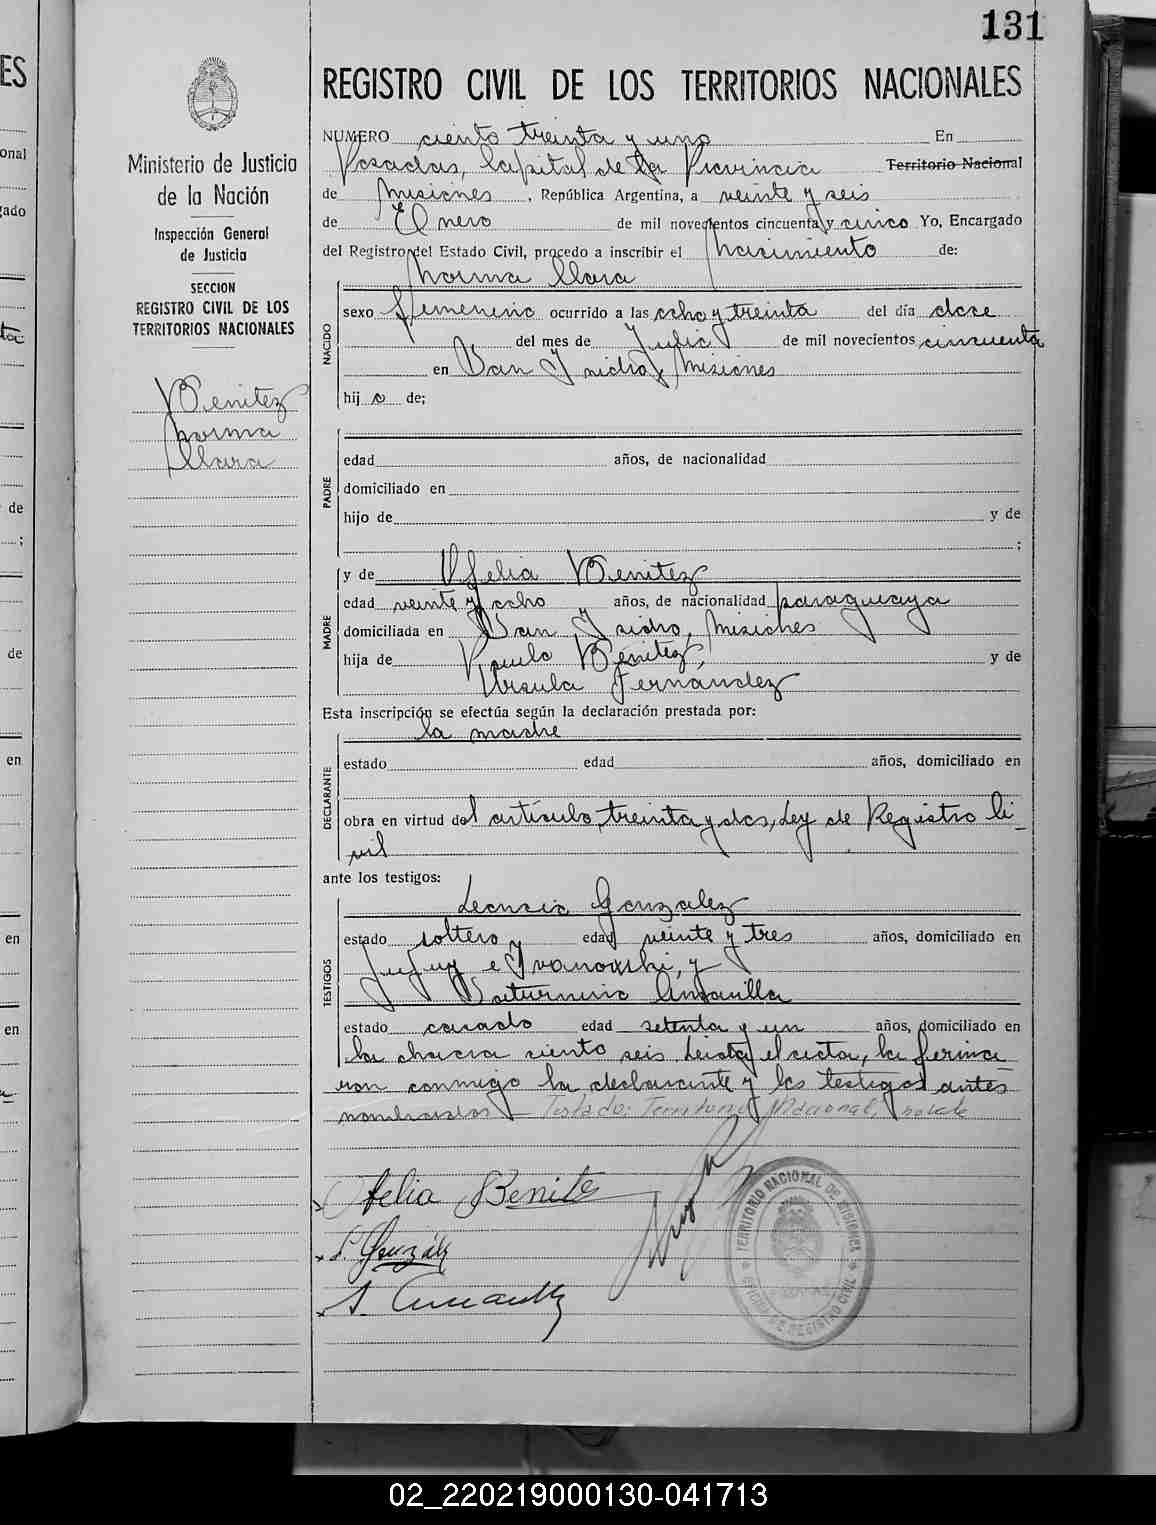 131
REGISTRO CIVIL DE LOS TERRITORIOS NACIONALES
Ministerio de Justicia
de la Nación
Inspección General
de Justicia
SECCION
REGISTRO CIVIL DE LOS
TERRITORIOS NACIONALES
Benitez
Norma
Clara
NUMERO ciento treinta y uno En
Posadas, Capital de la Provincia Territorio Nacional
de Misiones, República Argentina, a veinte y seis
de Enero de mil novecientos cincuenta y cinco Yo, Encargado
del Registro del Estado Civil, procedo a inscribir el Nacimiento de:
Norma Clara
NACIDO
sexo femenino ocurrido a las ocho y treinta del día doce
del mes de Julio de mil novecientos cincuenta
en San Isidro, Misiones
hij a de;
PADRE
edad años, de nacionalidad
domiciliado en
hijo de y de
;
y de Ofelia Benitez
MADRE
edad veinte y ocho años, de nacionalidad paraguaya
domiciliada en San Isidro, Misiones
hija de Paulo Benitez, y de
Ursula Fernández
Esta inscripción se efectúa según la declaración prestada por:
la madre
DECLARANTE
estado edad años, domiciliado en
obra en virtud del artículo treinta y dos, Ley de Registro Ci-
vil
ante los testigos:
Leoncio Gonzalez
TESTIGOS
estado soltero edad veinte y tres años, domiciliado en
Jujuy e Ivanowski, y
Saturnino
estado casado edad setenta y un años, domiciliado en
la chacra ciento seis. Leida el acta, la firma
ron conmigo la declarante y los testigos antes
nombrados — Testado: Territorio Nacional, no vale
Ofelia Benite
L. González
S.
TERRITORIO NACIONAL DE MISIONES
OFICINA DE REGISTRO CIVIL
ES
onal
gado
de
;
de
en
en
en
02_220219000130-041713